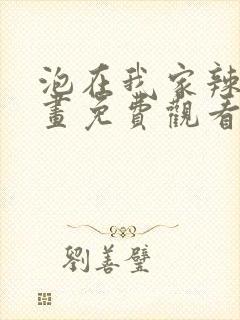 泡在我家辣
畫免費觀看
劉善璧